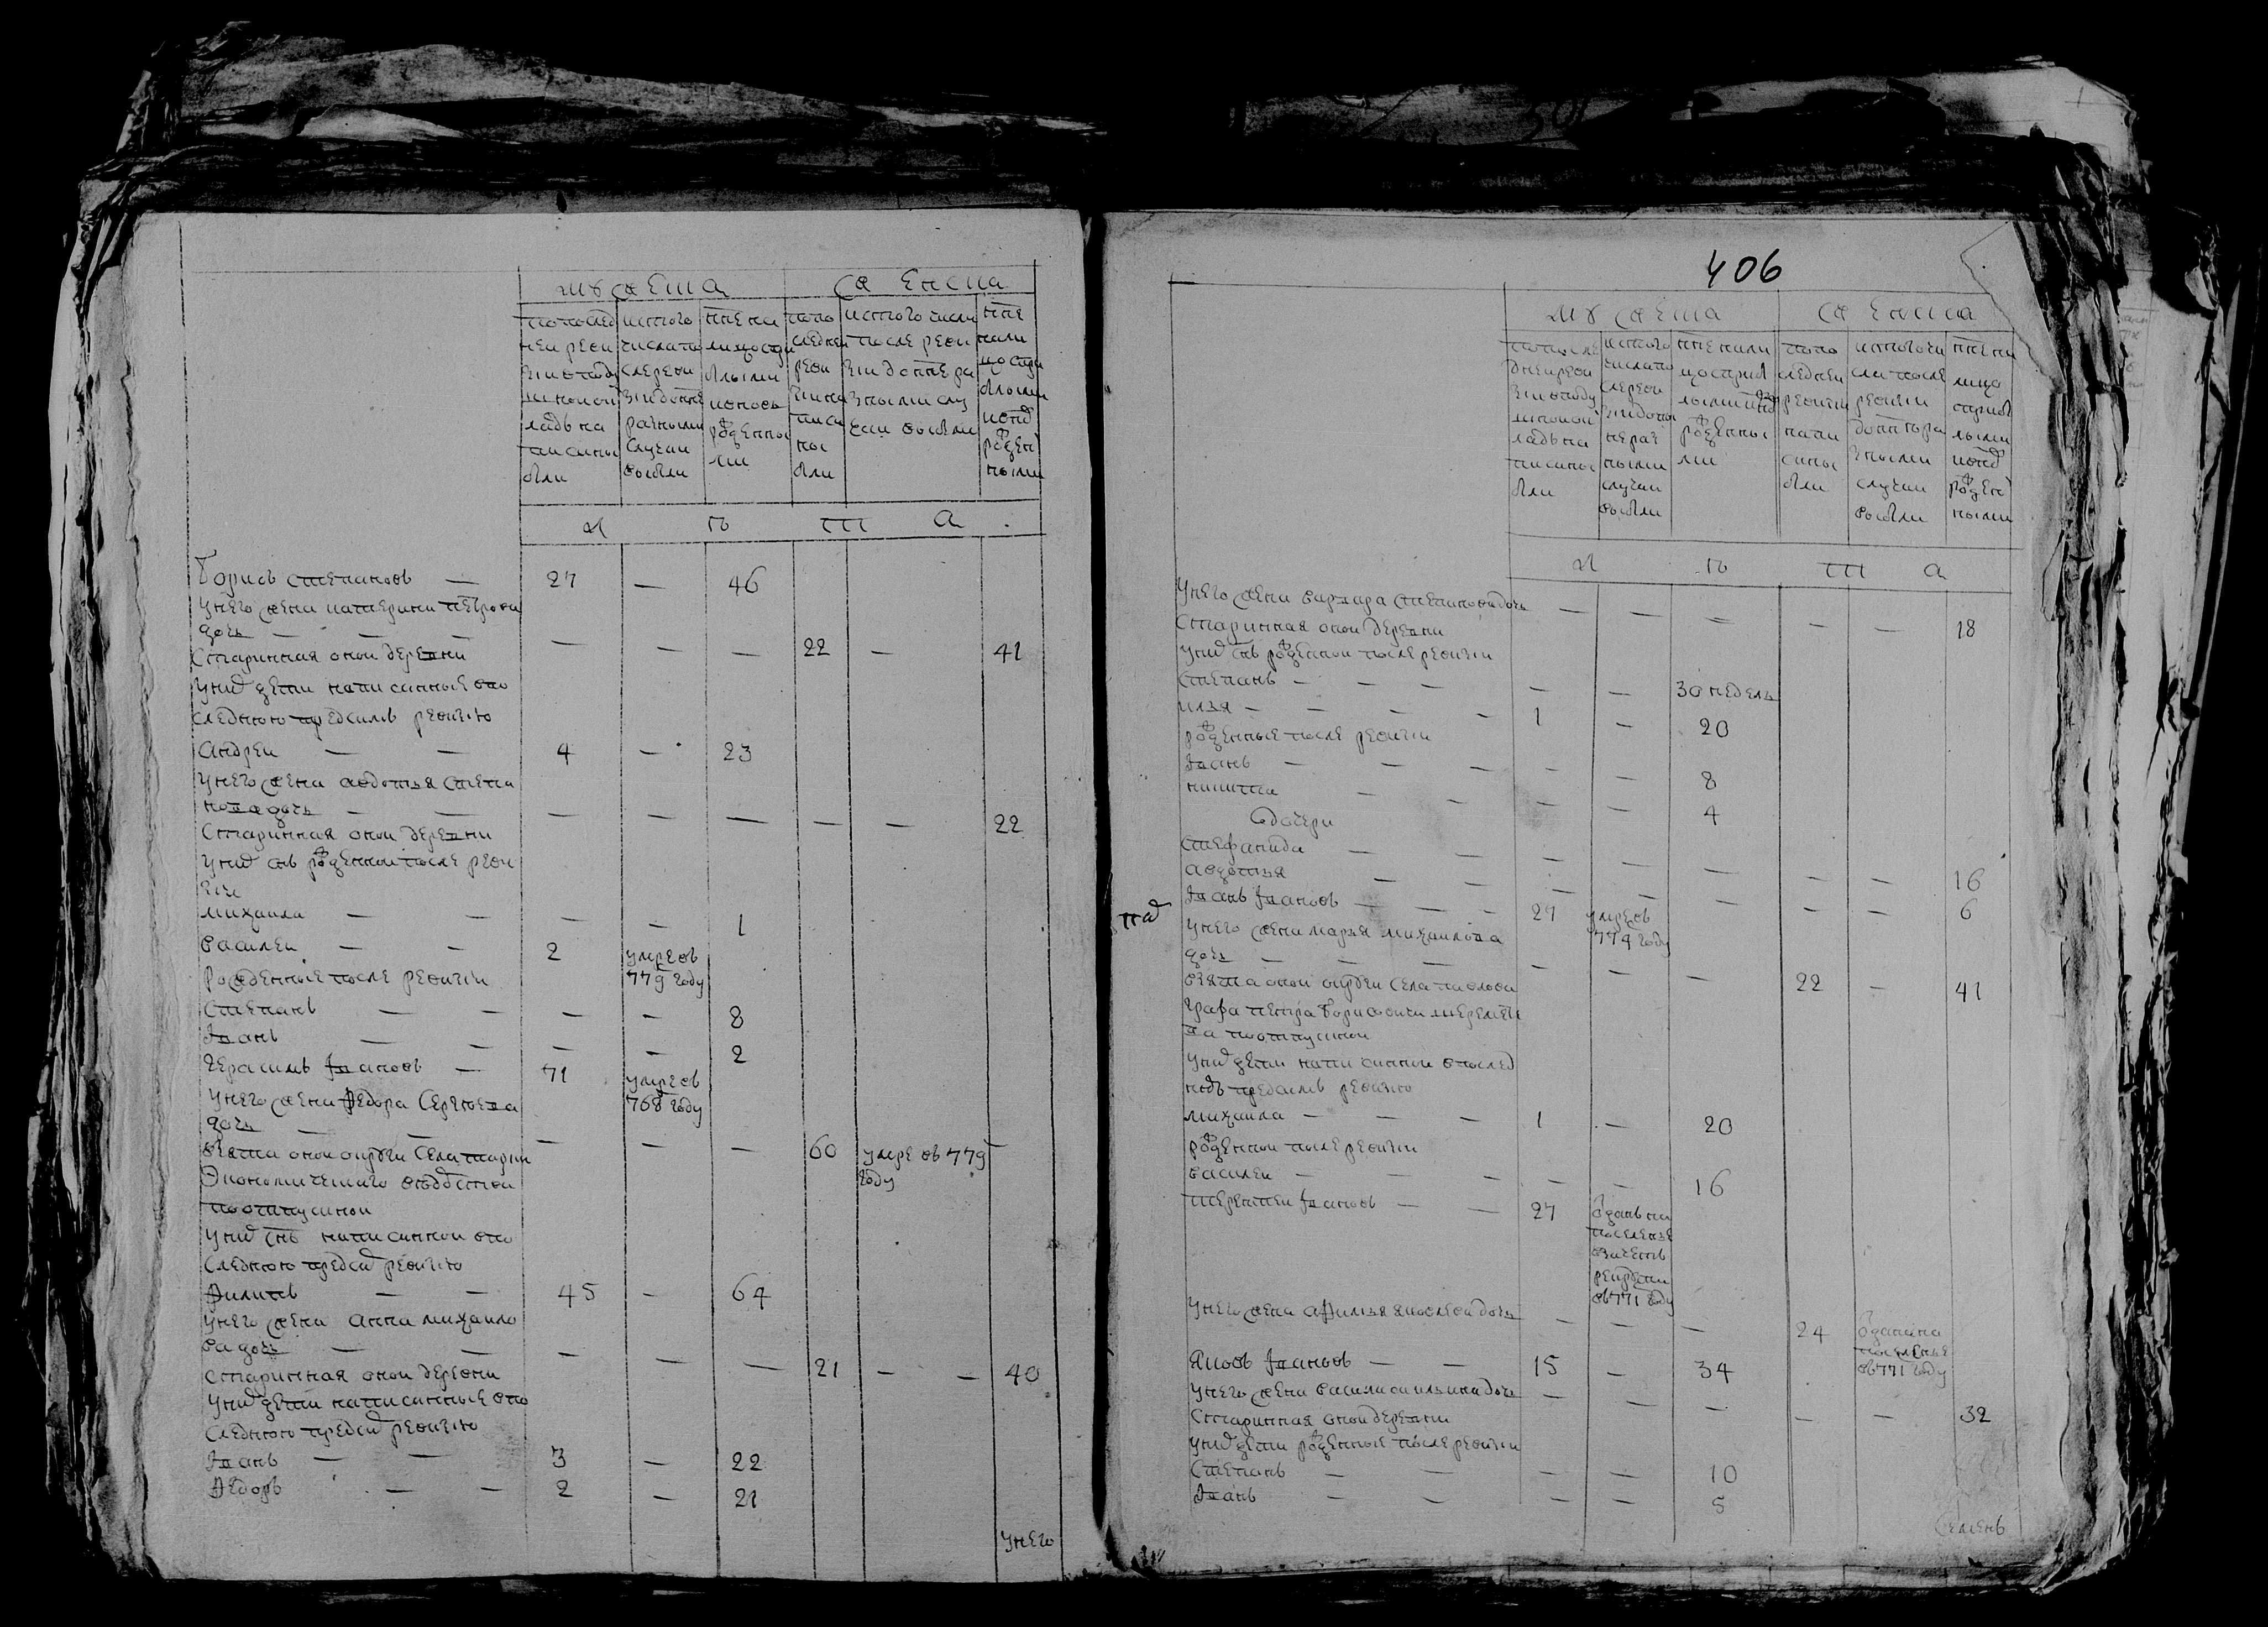 мужеска
женска
по послед
ней реви
зии в подушной оклад написаны были
ис того числа после ревизии до ныне разными случаи выбыли
ныне на лицо с прибылыми и вновь рожденными
по последней ревизии написаны были
ис того числа после ревизии до ныне разными случаи выбыли
ныне на лицо с прибылыми и вновь рожденными
л ѣ т а
Борисъ степановъ — 27 — 46
у него жена катерина петрова
дочь — — — — — — 22 — 41
старинная оной деревни
у них дети написанные в по
следнюю пред сим ревизию
андреи — — 4 — 23
у него жена авдотья степа
нова дочь — — — — — — — 22
старинная оной деревни
у них снъ рожденной после реви
зии
михаила — — — — 1
василеи — — 2 умре въ 779 году
рожденные после ревизии
степанъ — — — — 8
Иванъ — — — — 2
герасимъ Ивановъ — 71 умре въ 768 году
у него жена Федора Сергеева
дочь — — — — — 60 умре въ 779 году
взята оной округи села
Экономического ведомства
по отпускной
у них снъ написанной в по
следнюю пред сим ревизию
Филипъ — — 45 — 64
у него жена анна михаило
ва дочь — — — — — 21 — — 40
старинная оной деревни
у них дети написанные в по
следнюю пред сим ревизию
Иванъ — — 3 — 22
Федоръ — — 2 — 21
у него
406
мужеска
женска
по последней ревизии в подушной оклад написаны были
ис того числа после ревизии до ныне разными случаи выбыли
ныне на лицо с прибылыми и вновь рожденными
по последней ревизии написаны были
ис того числа после ревизии до ныне разными случаи выбыли
ныне на лицо с прибылыми и вновь рожденными
л ѣ т а
у него жена варвара степанова дочь — — — — — 18
старинная оной деревни
у них снъ рожденной после ревизии
степанъ — — — — — 30 недель
илья — — — — 1 — 20
рожденные после ревизии
Иванъ — — — — — 8
никита — — — — 4
дочери
стефанида — — — — — — — 16
авдотья — — — — — — — 6
Иванъ Ивановъ — — — 27 умре въ 779 году
у него жена марья михаилова
дочь — — — — — — 22 — 41
взята оной округи села павлова
графа петра борисовича шереметe
ва по отпускной
у них дети написанной в послед
нюю пред сим ревизию
михаила — — — 1 — 20
рожденной после ревизии
василеи — — — — 16
терентеи Ивановъ — — 27 отданъ на поселенье в зачетъ рекрута въ 771 году
у него жена афимья яковлева дочь — — — 24 отдана на поселенье въ 771 году
Яковъ Ивановъ — — 15 — 34
у него жена василиса ильина дочь — — — — — 32
старинная оной деревни
у них дети рожденные после ревизии
Степанъ — — — — 10
Иванъ — — — — 5
Семенъ